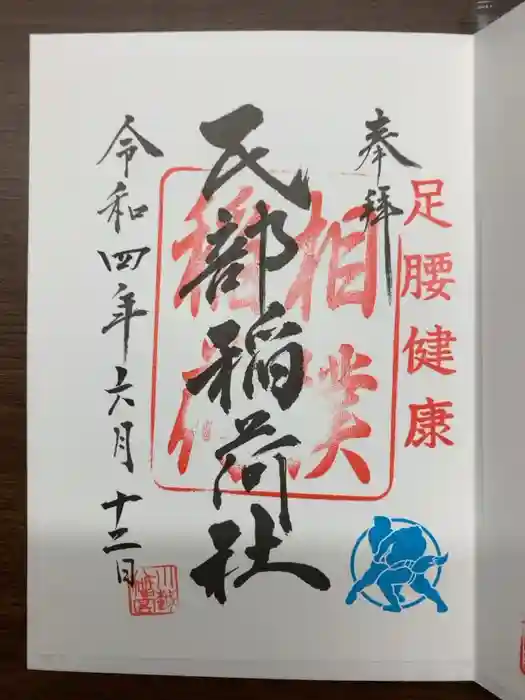 足腰健康
奉拝
相撲
稲荷
民部稲荷社
令和四年六月十二日